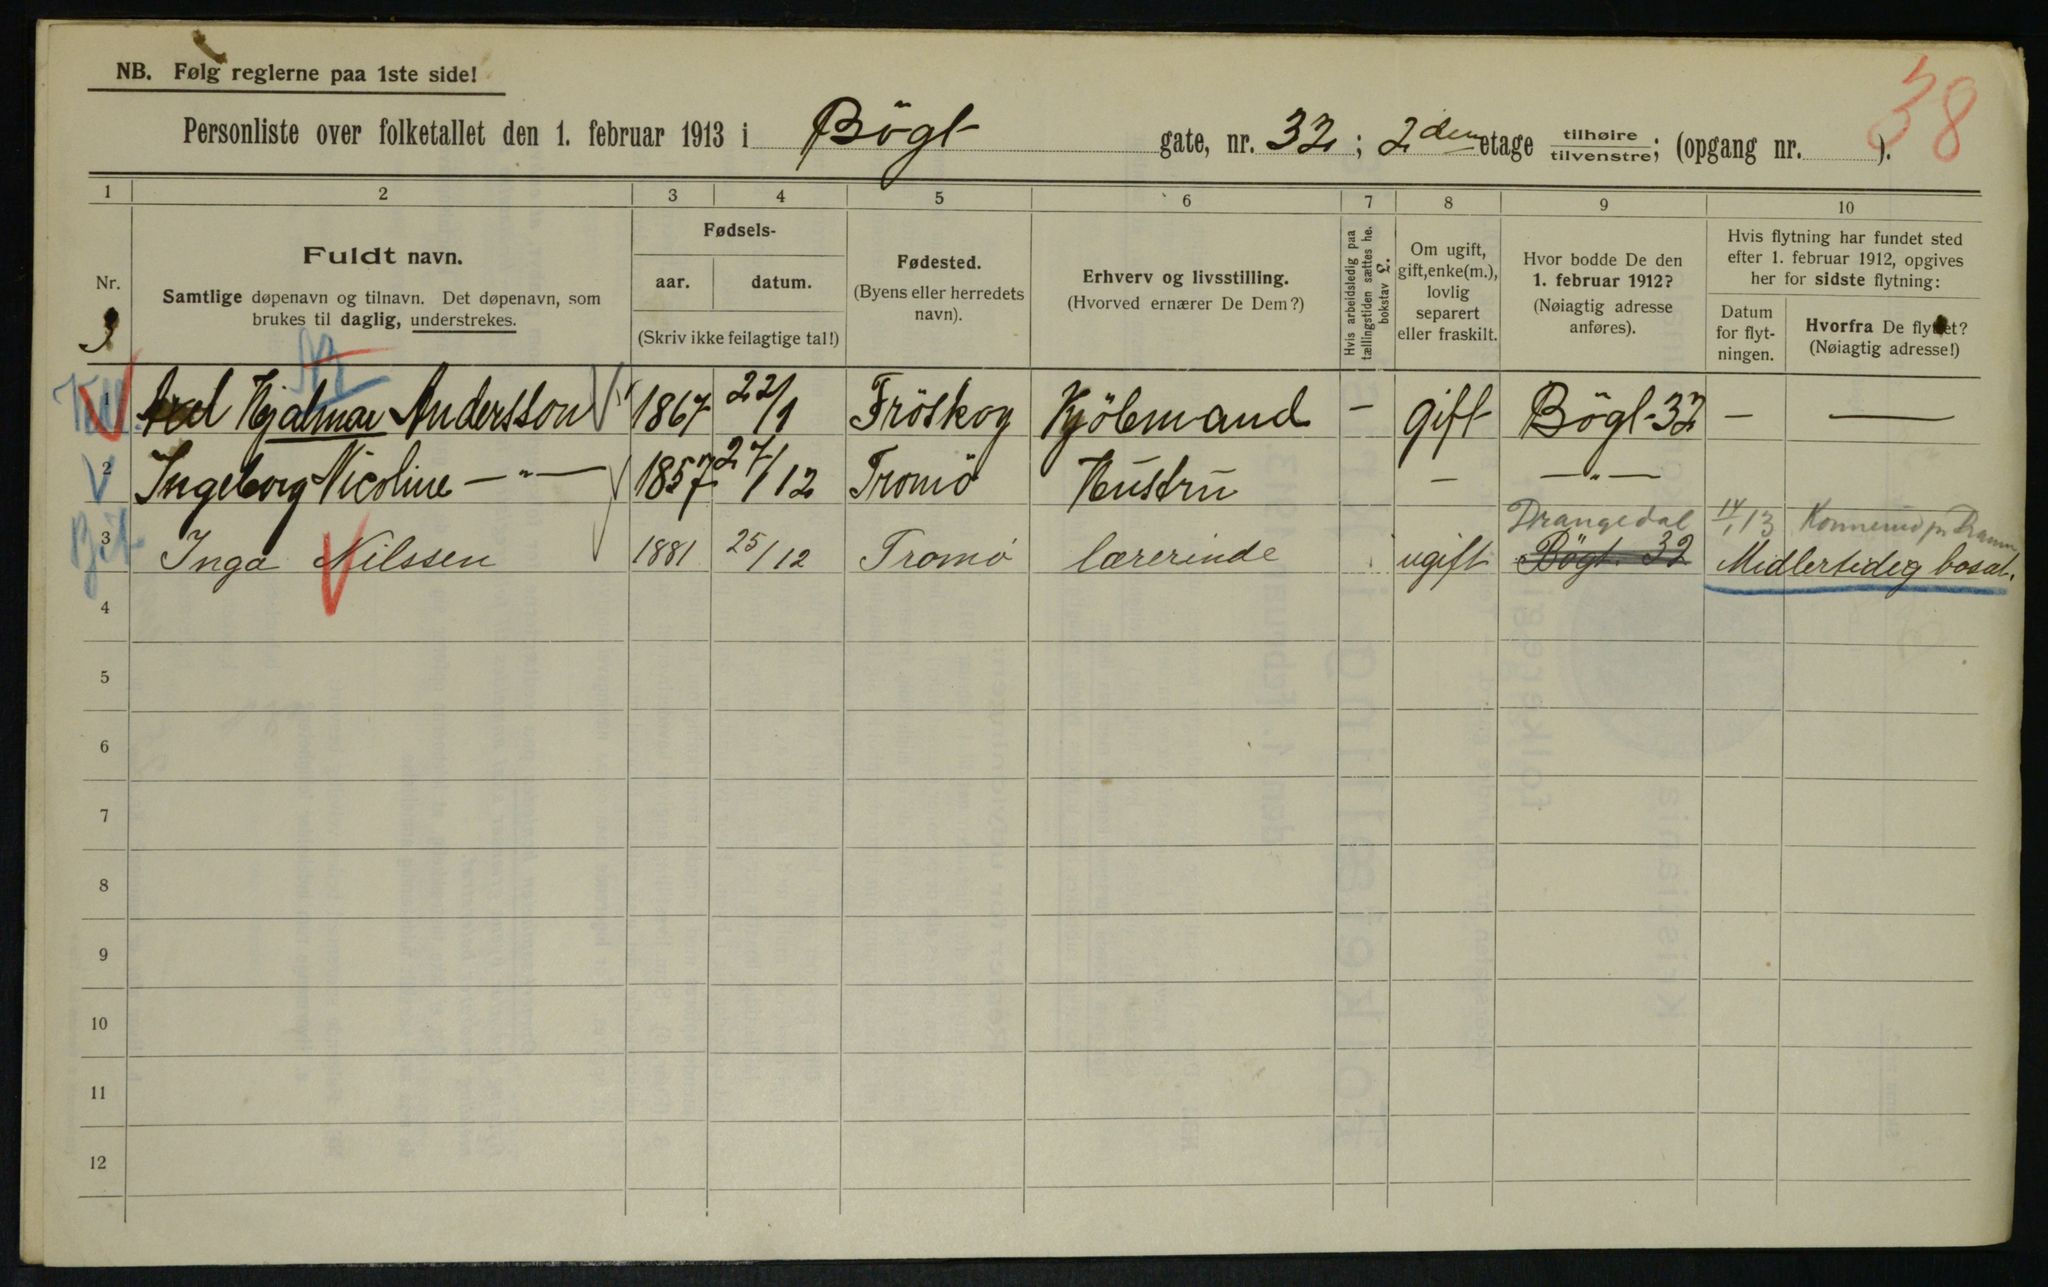 38
NB. Følg reglerne paa 1ste side!
Personliste over folketallet den 1. februar 1913 i Bögt gate, nr. 32; 2den etage tilhøire/tilvenstre; (opgang nr. ).
1 2 3 4 5 6 7 8 9 10
Nr.
Fuldt navn.
Samtlige døpenavn og tilnavn. Det døpenavn, som
brukes til daglig, understrekes.
Fødsels-
aar. datum.
(Skriv ikke feilagtige tal!)
Fødested.
(Byens eller herredets
navn).
Erhverv og livsstilling.
(Hvorved ernærer De Dem?)
Hvis arbeidsledig paa
tællingstiden sættes he.
bokstav £.
Om ugift,
gift, enke(m.),
lovlig
separert
eller fraskilt.
Hvor bodde De den
1. februar 1912?
(Nøiagtig adresse
anføres).
Hvis flytning har fundet sted
efter 1. februar 1912, opgives
her for sidste flytning:
Datum
for flyt-
ningen.
Hvorfra De flyttet?
(Nøiagtig adresse!)
3
1 Axel Hjalmar Andersson 1867 22/1 Fröskog Kjöbmand - gift Bögt-32 - —
2 Ingeborg Nicoline —"— 1857 27/12 Tromö Hustru - —"—
Drangedal 14/1 13 Konnerud pr Dramm
3 Inga Nilssen 1881 25/12 Tromö lærerinde ugift Bögt. 32 Midlertidig bosat.
4
5
6
7
8
9
10
11
12